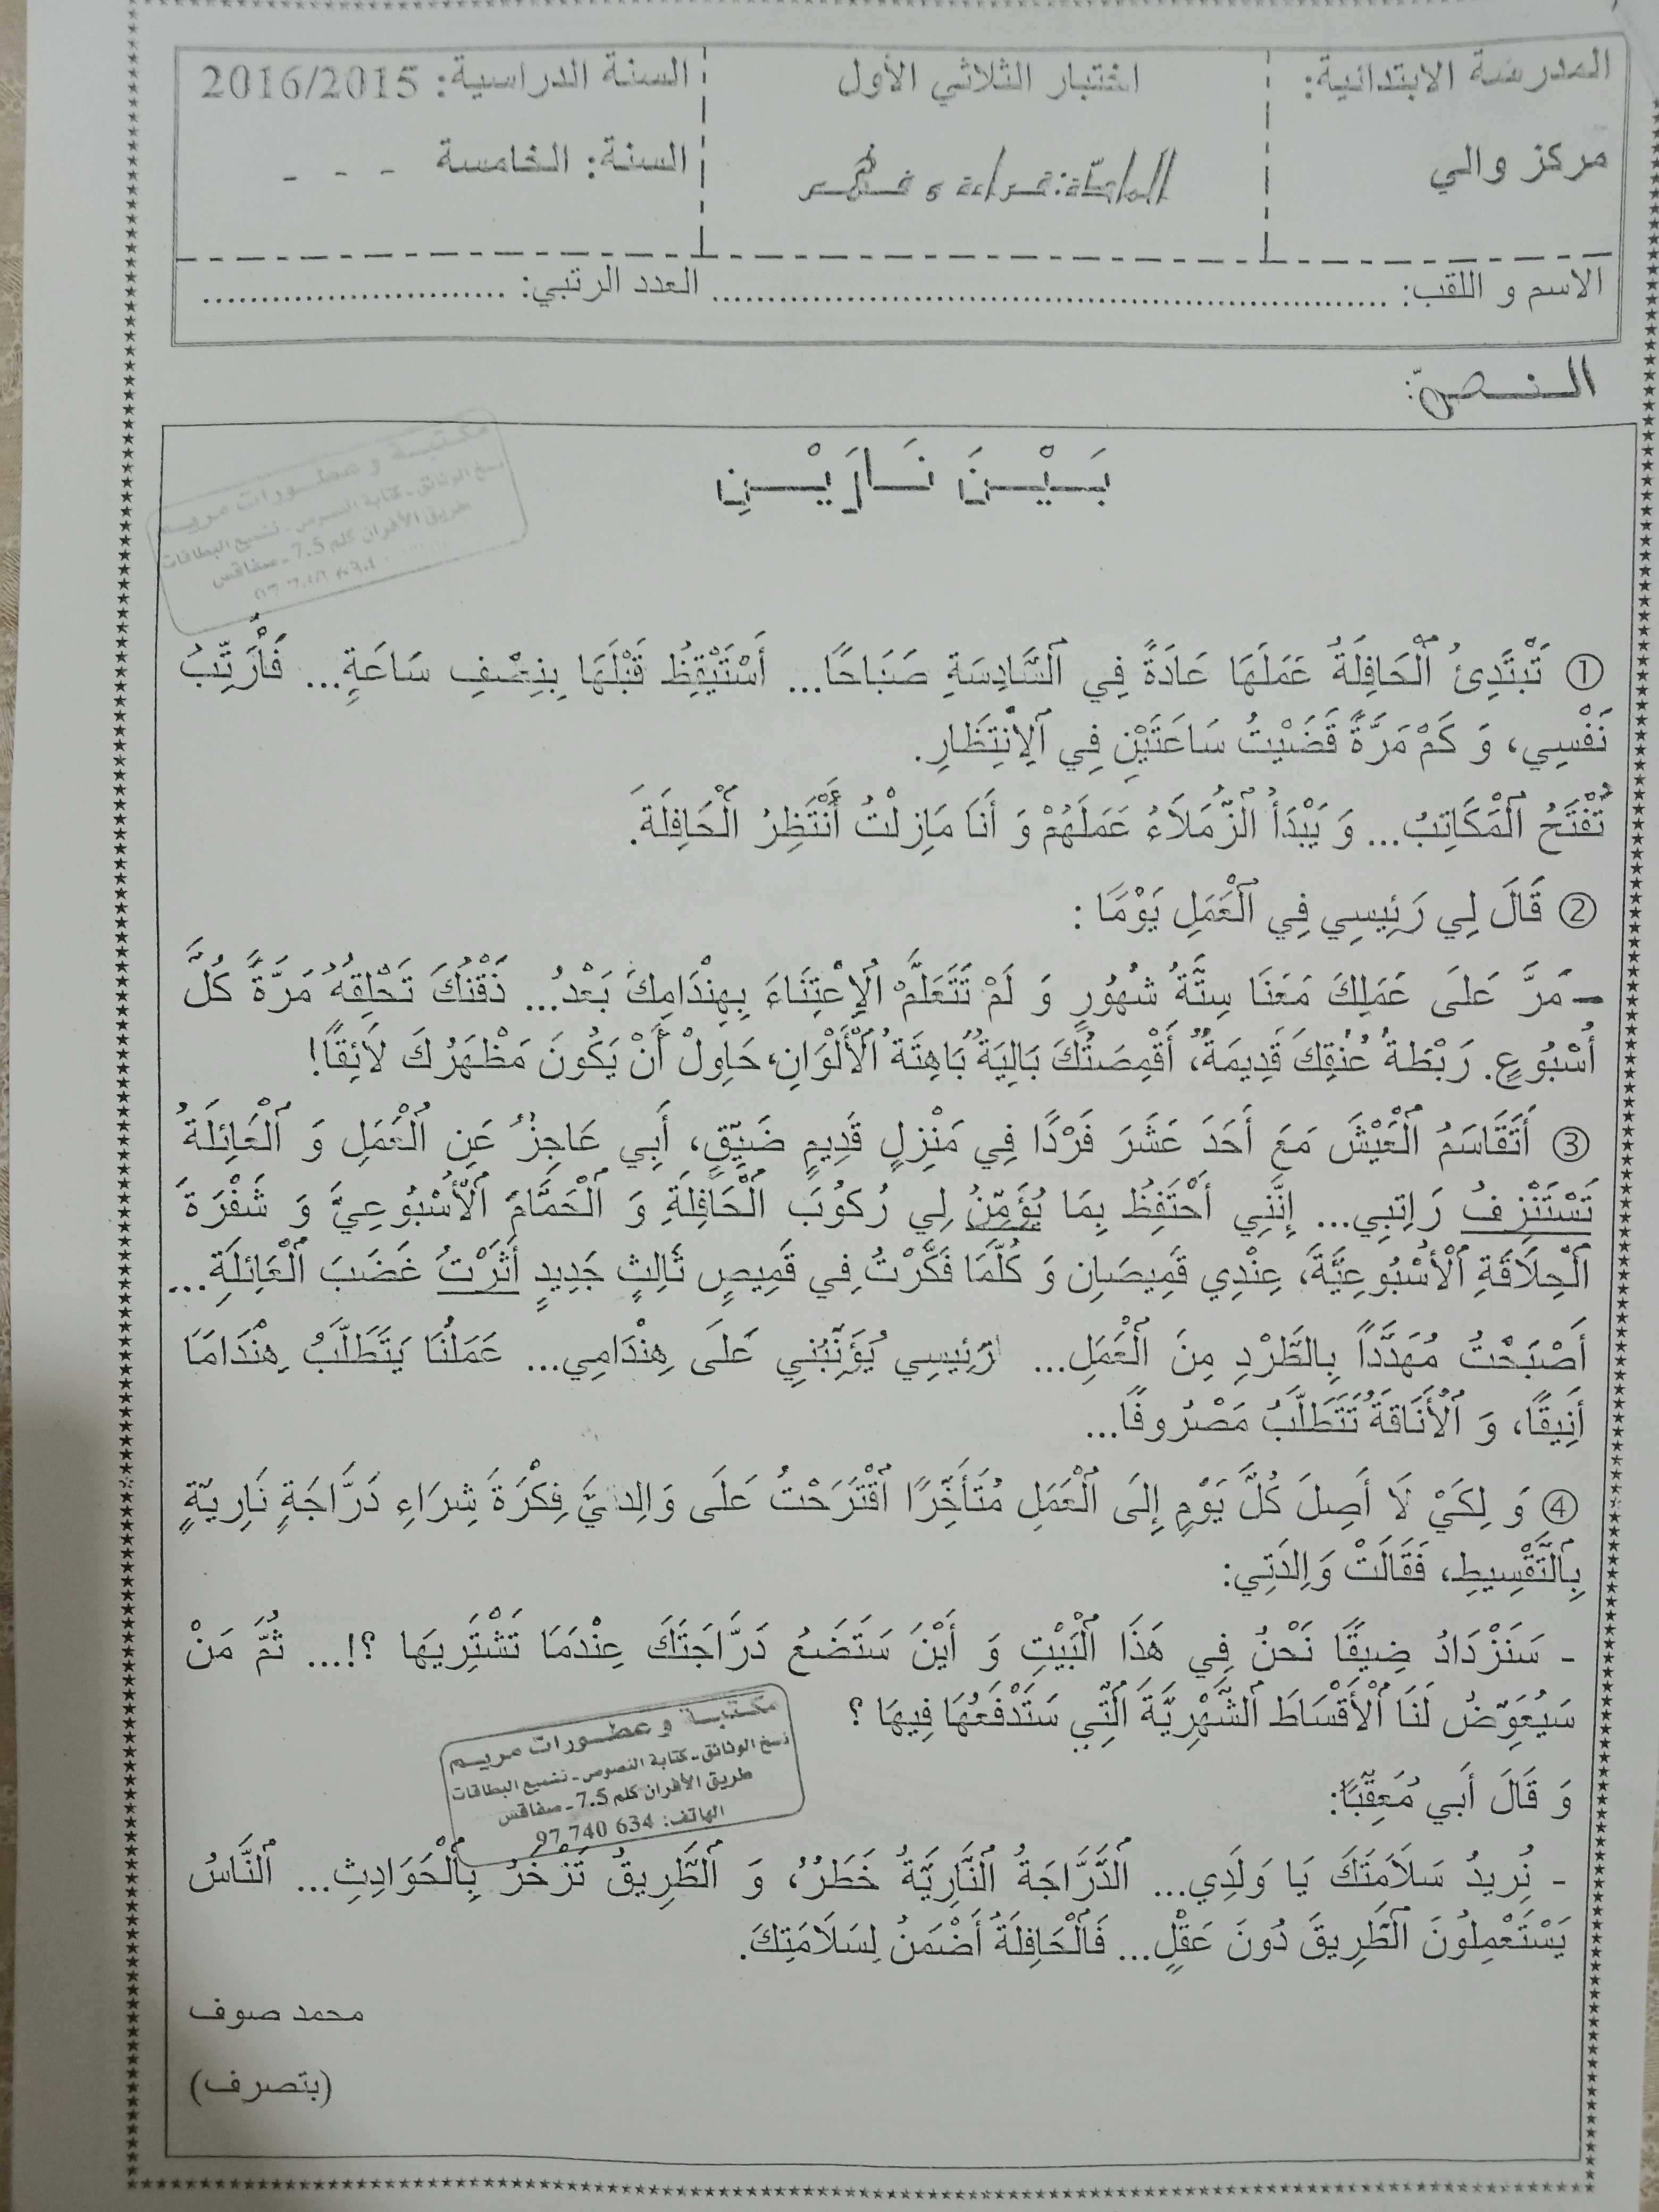 المدرسة الابتدائية:
مركز والي
اختبار الثلاثي الأول
المادّة: قراءة و فهم
السنة الدراسية: 2016/2015
السنة: الخامسة - - -
الاسم و اللقب: .......................................................... العدد الرتبي: ..........................
النصّ:
مكتبة و عطورات مريم
نسخ الوثائق - كتابة النصوص - تشميع البطاقات
طريق الأفران كلم 7.5 - صفاقس
بَيْنَ نَارَيْنِ
① تَبْتَدِئُ ٱلْحَافِلَةُ عَمَلَهَا عَادَةً فِي ٱلسَّادِسَةِ صَبَاحًا... أَسْتَيْقِظُ قَبْلَهَا بِنِصْفِ سَاعَةٍ... فَأُرَتِّبُ
نَفْسِي، وَ كَمْ مَرَّةً قَضَيْتُ سَاعَتَيْنِ فِي ٱلِٱنْتِظَارِ.
تُفْتَحُ ٱلْمَكَاتِبُ... وَ يَبْدَأُ ٱلزُّمَلَاءُ عَمَلَهُمْ وَ أَنَا مَازِلْتُ أَنْتَظِرُ ٱلْحَافِلَةَ.
② قَالَ لِي رَئِيسِي فِي ٱلْعَمَلِ يَوْمًا :
- مَرَّ عَلَى عَمَلِكَ مَعَنَا سِتَّةُ شُهُورٍ وَ لَمْ تَتَعَلَّمْ ٱلِٱعْتِنَاءَ بِهِنْدَامِكَ بَعْدُ... ذَقْنُكَ تَحْلِقُهُ مَرَّةً كُلَّ
أُسْبُوعٍ. رَبْطَةُ عُنُقِكَ قَدِيمَةٌ، أَقْمِصَتُكَ بَالِيَةٌ بَاهِتَةُ ٱلْأَلْوَانِ، حَاوِلْ أَنْ يَكُونَ مَظْهَرُكَ لَائِقًا!
③ أَتَقَاسَمُ ٱلْعَيْشَ مَعَ أَحَدَ عَشَرَ فَرْدًا فِي مَنْزِلٍ قَدِيمٍ ضَيِّقٍ، أَبِي عَاجِزٌ عَنِ ٱلْعَمَلِ وَ ٱلْعَائِلَةُ
تَسْتَنْزِفُ رَاتِبِي... إِنَّنِي أَحْتَفِظُ بِمَا يُؤَمِّنُ لِي رُكُوبَ ٱلْحَافِلَةِ وَ ٱلْحَمَّامَ ٱلْأُسْبُوعِيَّ وَ شَفْرَةَ
ٱلْحِلَاقَةِ ٱلْأُسْبُوعِيَّةَ، عِنْدِي قَمِيصَانِ وَ كُلَّمَا فَكَّرْتُ فِي قَمِيصٍ ثَالِثٍ جَدِيدٍ أَثَرْتُ غَضَبَ ٱلْعَائِلَةِ...
أَصْبَحْتُ مُهَدَّدًا بِالطَّرْدِ مِنَ ٱلْعَمَلِ... رَئِيسِي يُؤَنِّبُنِي عَلَى هِنْدَامِي... عَمَلُنَا يَتَطَلَّبُ هِنْدَامًا
أَنِيقًا، وَ ٱلْأَنَاقَةُ تَتَطَلَّبُ مَصْرُوفًا...
④ وَ لِكَيْ لَا أَصِلَ كُلَّ يَوْمٍ إِلَى ٱلْعَمَلِ مُتَأَخِّرًا ٱقْتَرَحْتُ عَلَى وَالِدَيَّ فِكْرَةَ شِرَاءِ دَرَّاجَةٍ نَارِيَّةٍ
بِٱلتَّقْسِيطِ، فَقَالَتْ وَالِدَتِي:
- سَنَزْدَادُ ضِيقًا نَحْنُ فِي هَذَا ٱلْبَيْتِ وَ أَيْنَ سَتَضَعُ دَرَّاجَتَكَ عِنْدَمَا تَشْتَرِيهَا ؟!... ثُمَّ مَنْ
سَيُعَوِّضُ لَنَا ٱلْأَقْسَاطَ ٱلشَّهْرِيَّةَ ٱلَّتِي سَتَدْفَعُهَا فِيهَا ؟
مكتبة و عطورات مريم
نسخ الوثائق - كتابة النصوص - تشميع البطاقات
طريق الأفران كلم 7.5 - صفاقس
الهاتف: 634 740 97
وَ قَالَ أَبِي مُعَقِّبًا:
- نُرِيدُ سَلَامَتَكَ يَا وَلَدِي... ٱلدَّرَّاجَةُ ٱلنَّارِيَّةُ خَطَرٌ، وَ ٱلطَّرِيقُ تَزْخَرُ بِٱلْحَوَادِثِ... ٱلنَّاسُ
يَسْتَعْمِلُونَ ٱلطَّرِيقَ دُونَ عَقْلٍ... فَٱلْحَافِلَةُ أَضْمَنُ لِسَلَامَتِكَ.
محمد صوف
(بتصرف)